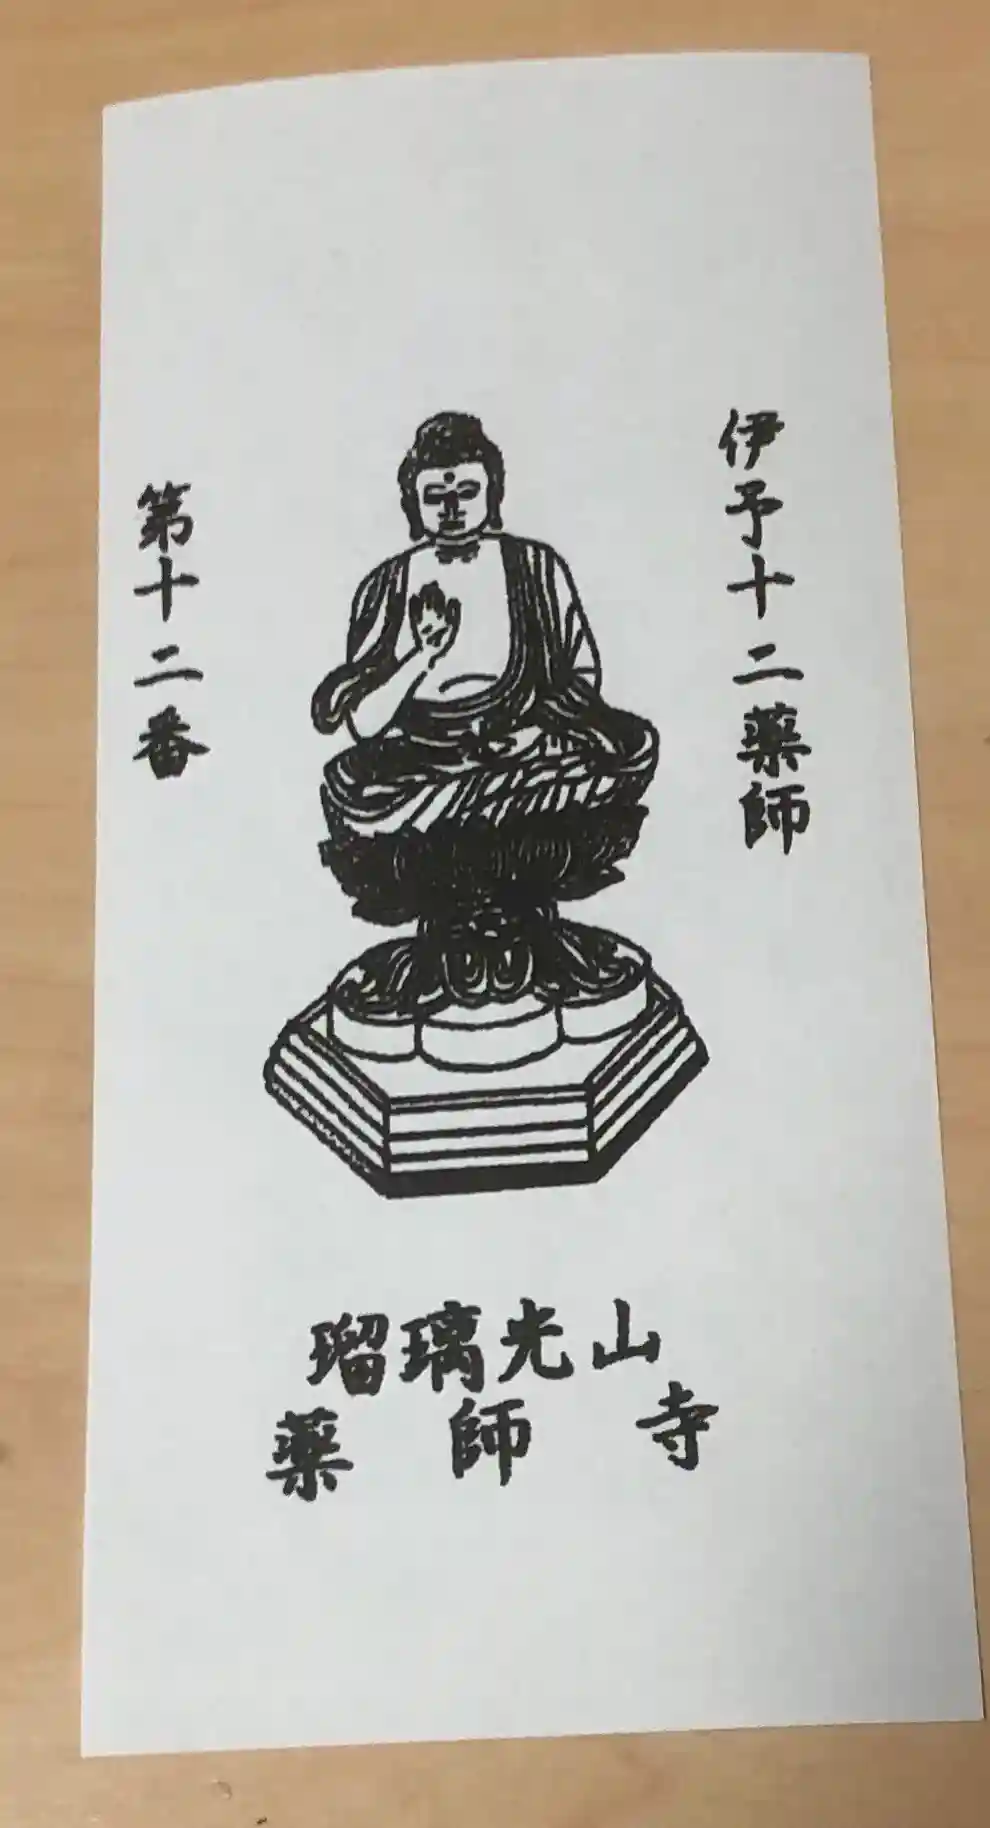 伊予十二薬師
第十二番
瑠璃光山
薬師寺